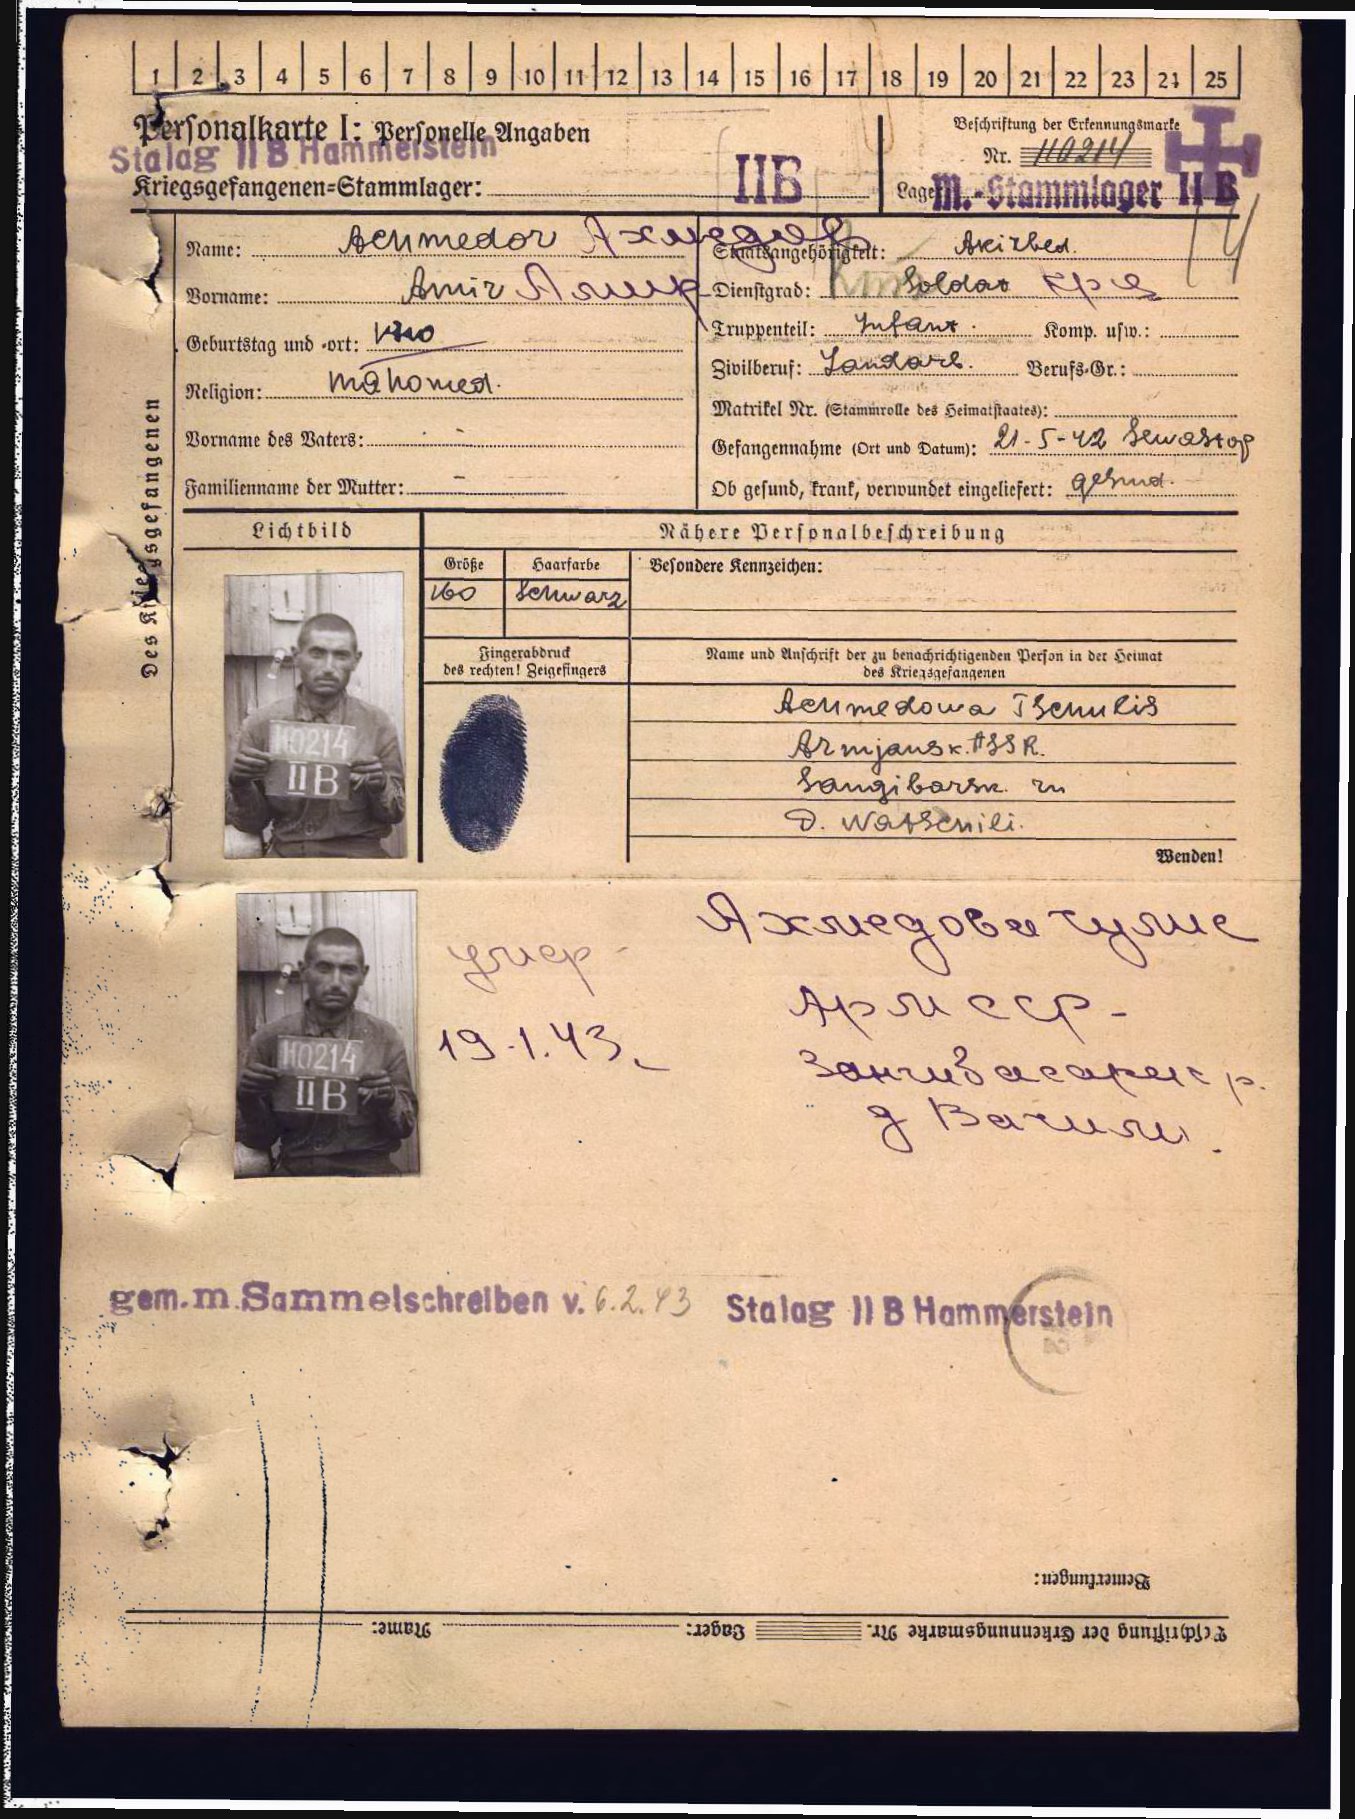 1 2 3 4 5 6 7 8 9 10 11 12 13 14 15 16 17 18 19 20 21 22 23 24 25
Personalkarte I: Personelle Angaben
Stalag II B Hammerstein
Kriegsgefangenen=Stammlager:
IIB
Beschriftung der Erkennungsmarke
Nr. 110214
Lager: M.-Stammlager II B
Des Kriegsgefangenen
Name: Achmedov Ахмедов
Vorname: Amir Амир
Geburtstag und -ort:
Religion: Mahomed.
Vorname des Vaters: -
Familienname der Mutter: -
Staatsangehörigkeit:
Dienstgrad: Soldat
Truppenteil: Infant. Komp. usw.:
Zivilberuf: Landarb. Berufs-Gr.:
Matrikel Nr. (Stammrolle des Heimatstaates):
Gefangennahme (Ort und Datum): 21-5-42 Sewastop
Ob gesund, krank, verwundet eingeliefert: gesund.
Lichtbild
Nähere Personalbeschreibung
Größe Haarfarbe Besondere Kennzeichen:
160 Schwarz
Fingerabdruck
des rechten! Zeigefingers
Name und Anschrift der zu benachrichtigenden Person in der Heimat
des Kriegsgefangenen
Achmedowa Tschulis
Armjansk. SSR.
Sangibarsk. rn
D. Watschili.
Wenden!
110214
II B
110214
II B
умер
19.1.43.
Ахмедова Чулие
Арм ССР-
Зангибасарск р.
д Вачили.
gem. m. Sammelschreiben v. 6.2.43 Stalag II B Hammerstein
Bemerkungen:
Beschriftung der Erkennungsmarke Nr. Lager: Name: